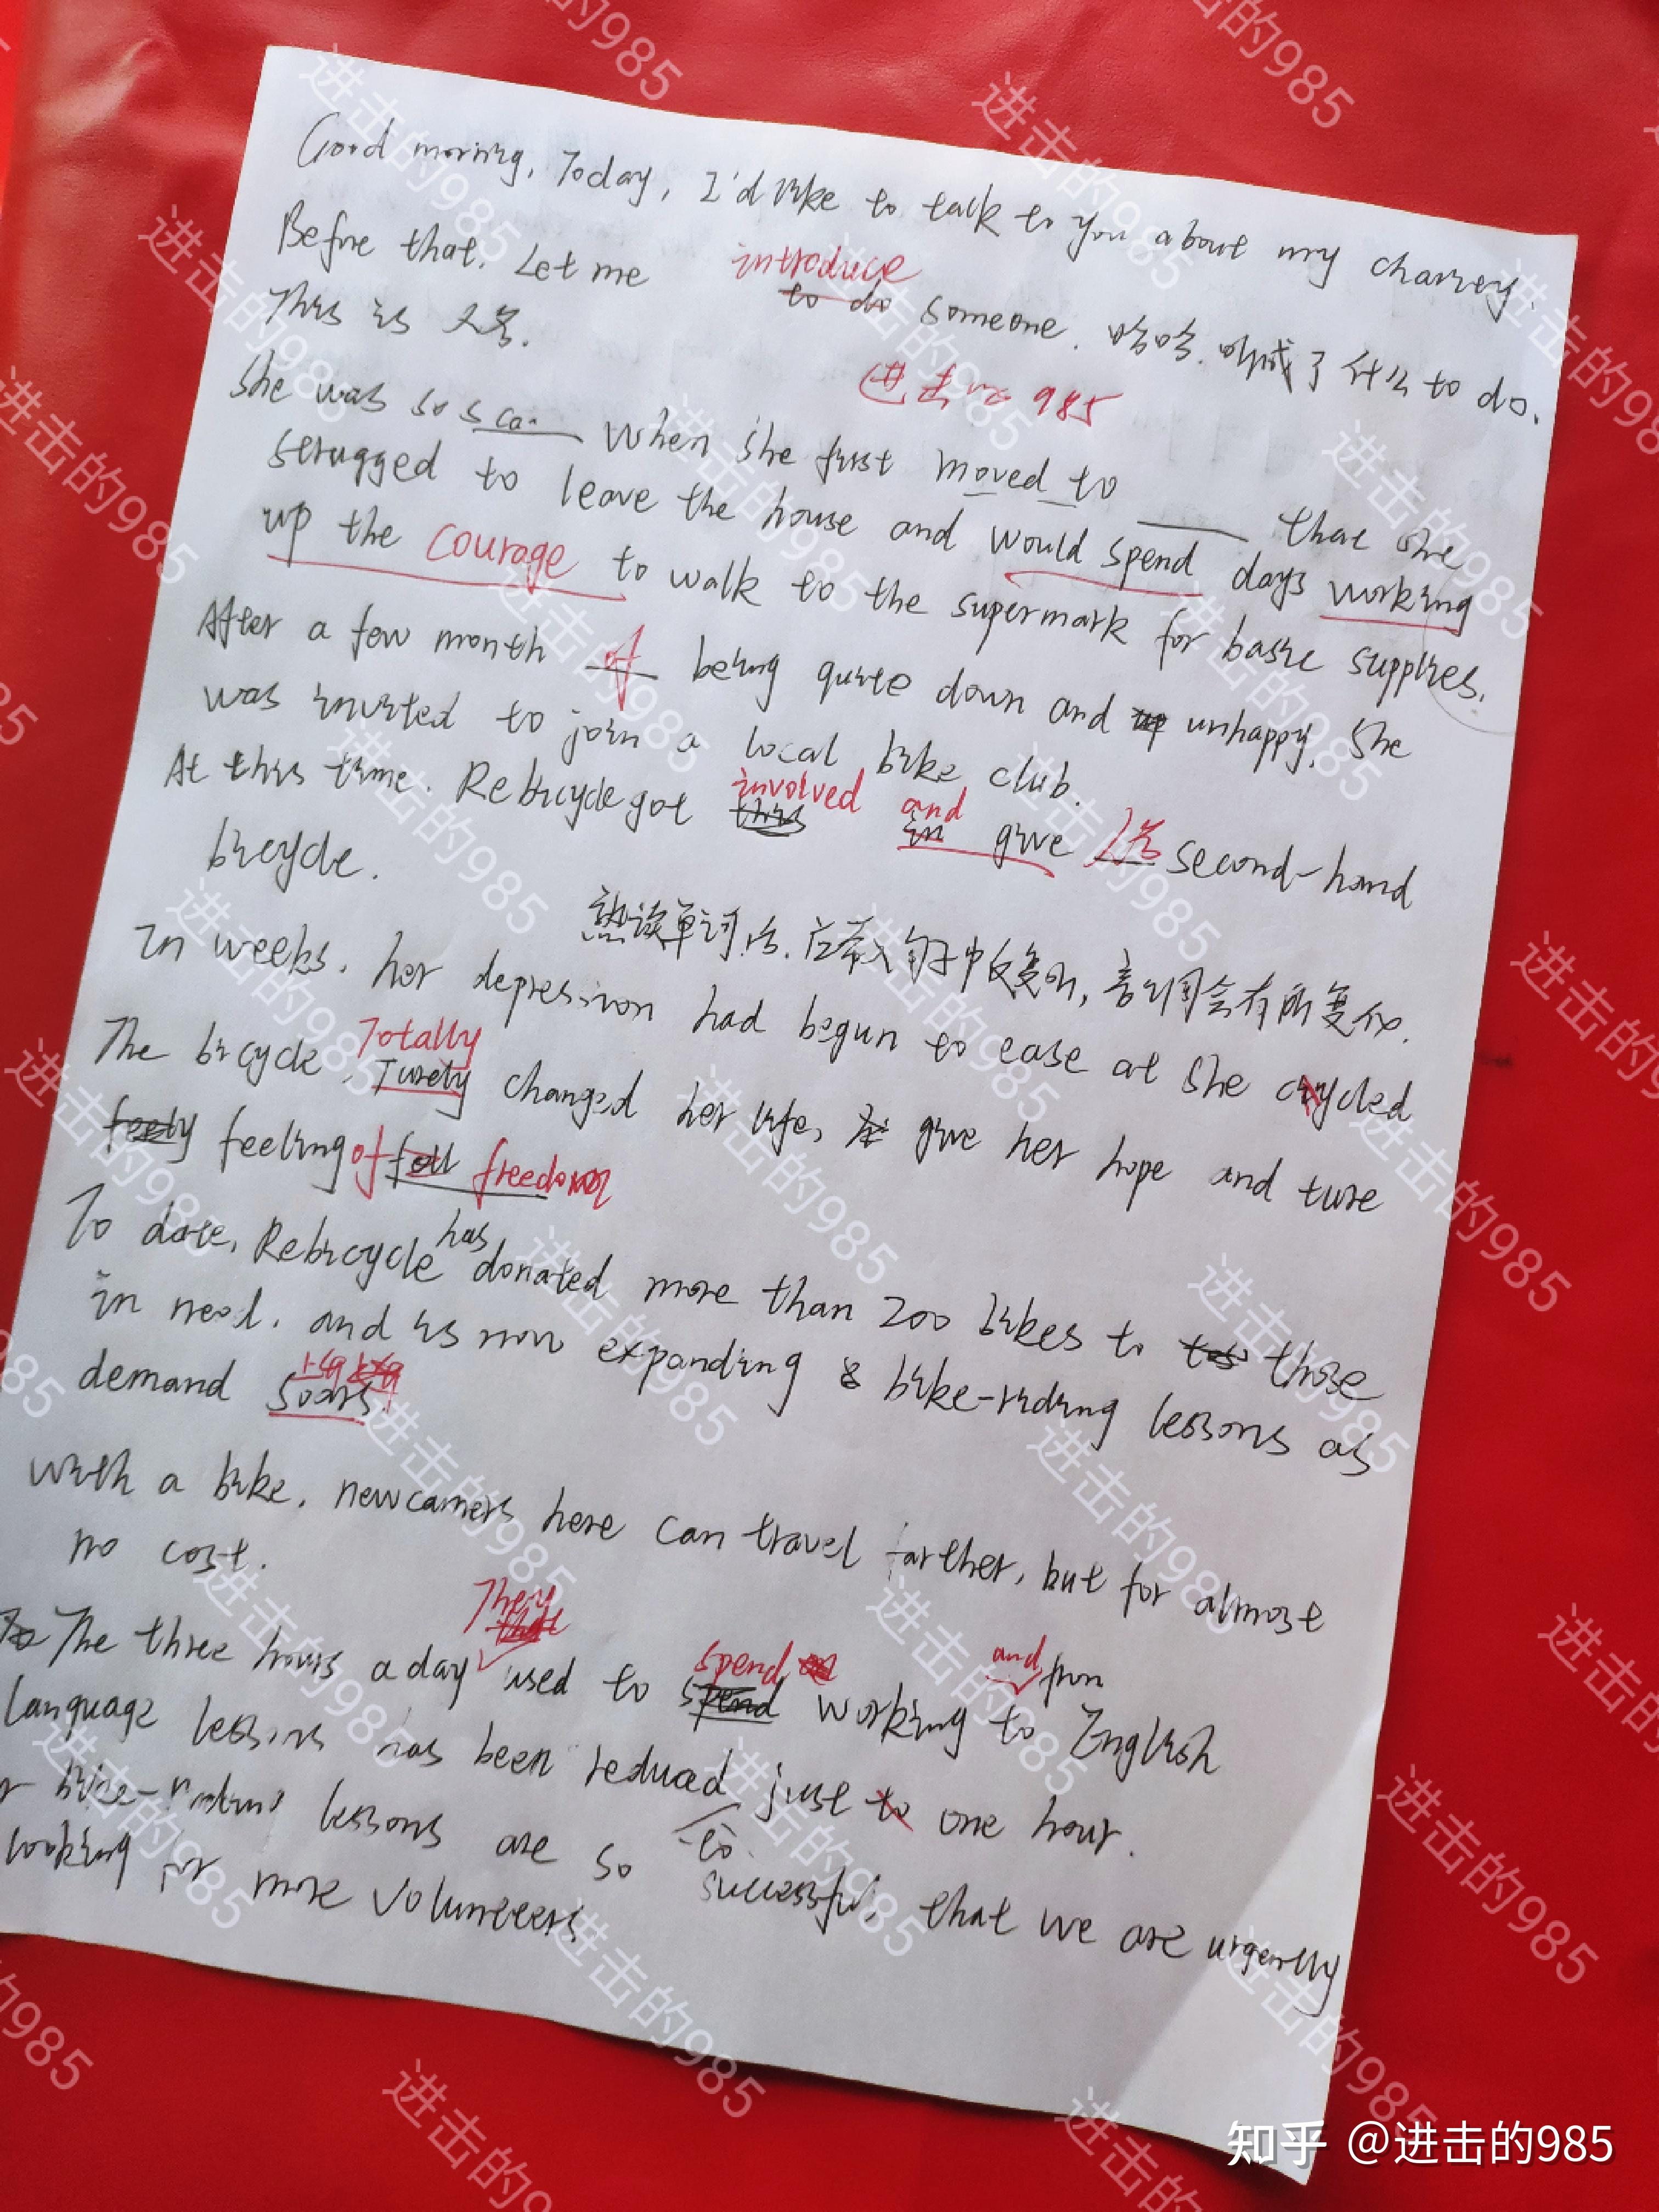 Good morning, Today, I'd like to talk to you about my charrey.
introduce
Before that. Let me to do someone. 哈哈. 听成了什么 to do.
This is 人名.
进击的985
She was so sca. When she first moved to that she
strugged to leave the house and would spend days working
up the courage to walk to the supermark for basic supplies.
After a few month of being quite down and up unhappy. She
was invited to join a local bike club.
involved and
At this time. Rebicycle got this in give 人名 second-hand
bicycle.
熟读单词后. 应带入句子中反复听,
In weeks, her depression had begun to ease at she cycled
Totally
The bicycle, Turely changed her life, give her hope and ture
feely feeling of fell freedom
has
To date, Rebicycle donated more than 200 bikes to those
in need. and is now expanding bike-riding lessons as
demand soars
With a bike, newcamers here can travel farther, but for almost
no cost.
They
spend and from
The three hours a day used to spend working to English
language lessons has been reduced just to one hour.
to
bike-riding lessons are so successful, that we are urgently
looking for more volunteers
知乎 @进击的985
进击的985